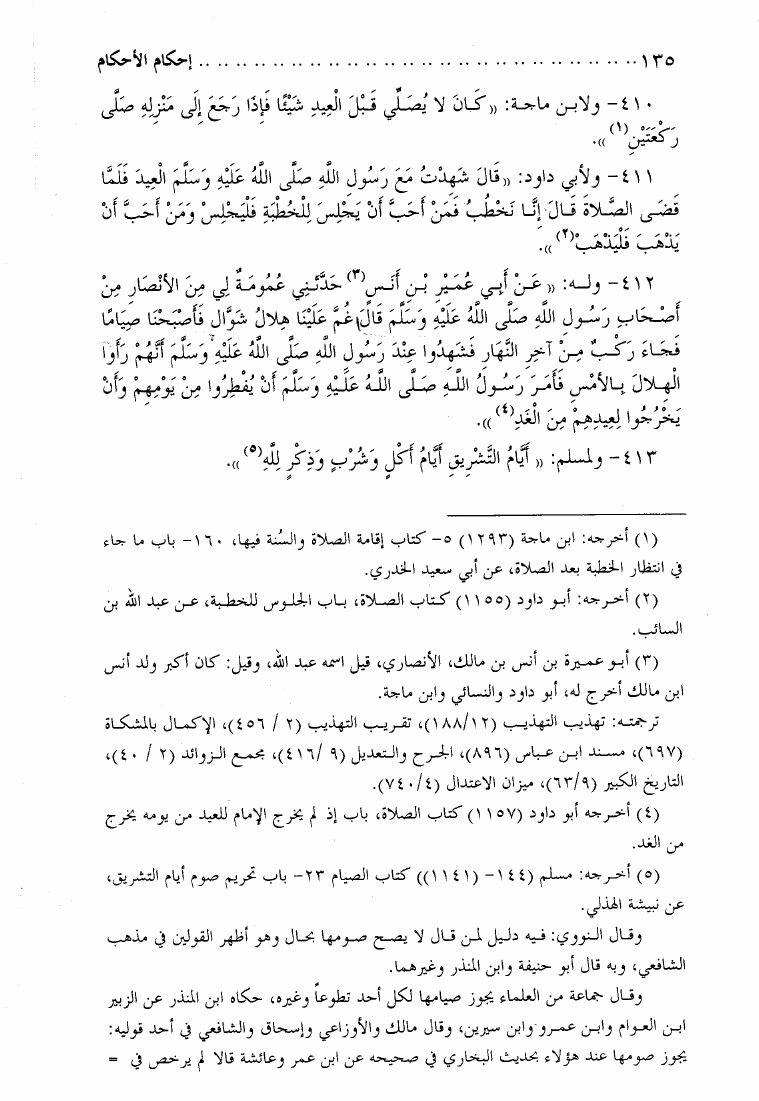 ١٣٥ .................................................. إحكام الأحكام
٤١٠- ولابن ماجة: «كَانَ لا يُصَلِّي قَبْلَ الْعِيدِ شَيْئًا فَإِذَا رَجَعَ إِلَى مَنْزِلِهِ صَلَّى
رَكْعَتَيْنِ(١)».
٤١١- ولأبي داود: «قَالَ شَهِدْتُ مَعَ رَسُولِ اللَّهِ صَلَّى اللَّهُ عَلَيْهِ وَسَلَّمَ الْعِيدَ فَلَمَّا
قَضَى الصَّلاةَ قَالَ إِنَّا نَخْطُبُ فَمَنْ أَحَبَّ أَنْ يَجْلِسَ لِلْخُطْبَةِ فَلْيَجْلِسْ وَمَنْ أَحَبَّ أَنْ
يَذْهَبَ فَلْيَذْهَبْ(٢)».
٤١٢- وله: «عَنْ أَبِي عُمَيْرِ بْنِ أَنَسٍ(٣) حَدَّثَنِي عُمُومَةٌ لِي مِنَ الأَنْصَارِ مِنْ
أَصْحَابِ رَسُولِ اللَّهِ صَلَّى اللَّهُ عَلَيْهِ وَسَلَّمَ قَالَ غُمَّ عَلَيْنَا هِلالُ شَوَّالٍ فَأَصْبَحْنَا صِيَامًا
فَجَاءَ رَكْبٌ مِنْ آخِرِ النَّهَارِ فَشَهِدُوا عِنْدَ رَسُولِ اللَّهِ صَلَّى اللَّهُ عَلَيْهِ وَسَلَّمَ أَنَّهُمْ رَأَوُا
الْهِلالَ بِالأَمْسِ فَأَمَرَ رَسُولُ اللَّهِ صَلَّى اللَّهُ عَلَيْهِ وَسَلَّمَ أَنْ يُفْطِرُوا مِنْ يَوْمِهِمْ وَأَنْ
يَخْرُجُوا لِعِيدِهِمْ مِنَ الْغَدِ(٤)».
٤١٣- ولمسلم: «أَيَّامُ التَّشْرِيقِ أَيَّامُ أَكْلٍ وَشُرْبٍ وَذِكْرٍ لِلَّهِ(٥)».
(١) أخرجه: ابن ماجة (١٢٩٣) ٥- كتاب إقامة الصلاة والسُنة فيها، ١٦٠- باب ما جاء
في انتظار الخطبة بعد الصلاة، عن أبي سعيد الخدري.
(٢) أخرجه: أبو داود (١١٥٥) كتاب الصلاة، باب الجلوس للخطبة، عن عبد الله بن
السائب.
(٣) أبو عميرة بن أنس بن مالك، الأنصاري، قيل اسمه عبد الله، وقيل: كان أكبر ولد أنس
ابن مالك أخرج له، أبو داود والنسائي وابن ماجة.
ترجمته: تهذيب التهذيب (١٨٨/١٢)، تقريب التهذيب (٢ / ٤٥٦)، الإكمال بالمشكاة
(٦٩٧)، مسند ابن عباس (٨٩٦)، الجرح والتعديل (٩ /٤١٦)، مجمع الزوائد (٢ / ٤٠)،
التاريخ الكبير (٦٣/٩)، ميزان الاعتدال (٧٤٠/٤).
(٤) أخرجه أبو داود (١١٥٧) كتاب الصلاة، باب إذ لم يخرج الإمام للعيد من يومه يخرج
من الغد.
(٥) أخرجه: مسلم (١٤٤- (١١٤١)) كتاب الصيام ٢٣- باب تحريم صوم أيام التشريق،
عن نبيشة الهذلي.
وقال النووي: فيه دليل لمن قال لا يصح صومها بحال وهو أظهر القولين في مذهب
الشافعي، وبه قال أبو حنيفة وابن المنذر وغيرهما.
وقال جماعة من العلماء يجوز صيامها لكل أحد تطوعاً وغيره، حكاه ابن المنذر عن الزبير
ابن العوام وابن عمرو وابن سيرين، وقال مالك والأوزاعي وإسحاق والشافعي في أحد قوليه:
يجوز صومها عند هؤلاء بحديث البخاري في صحيحه عن ابن عمر وعائشة قالا لم يرخص في =